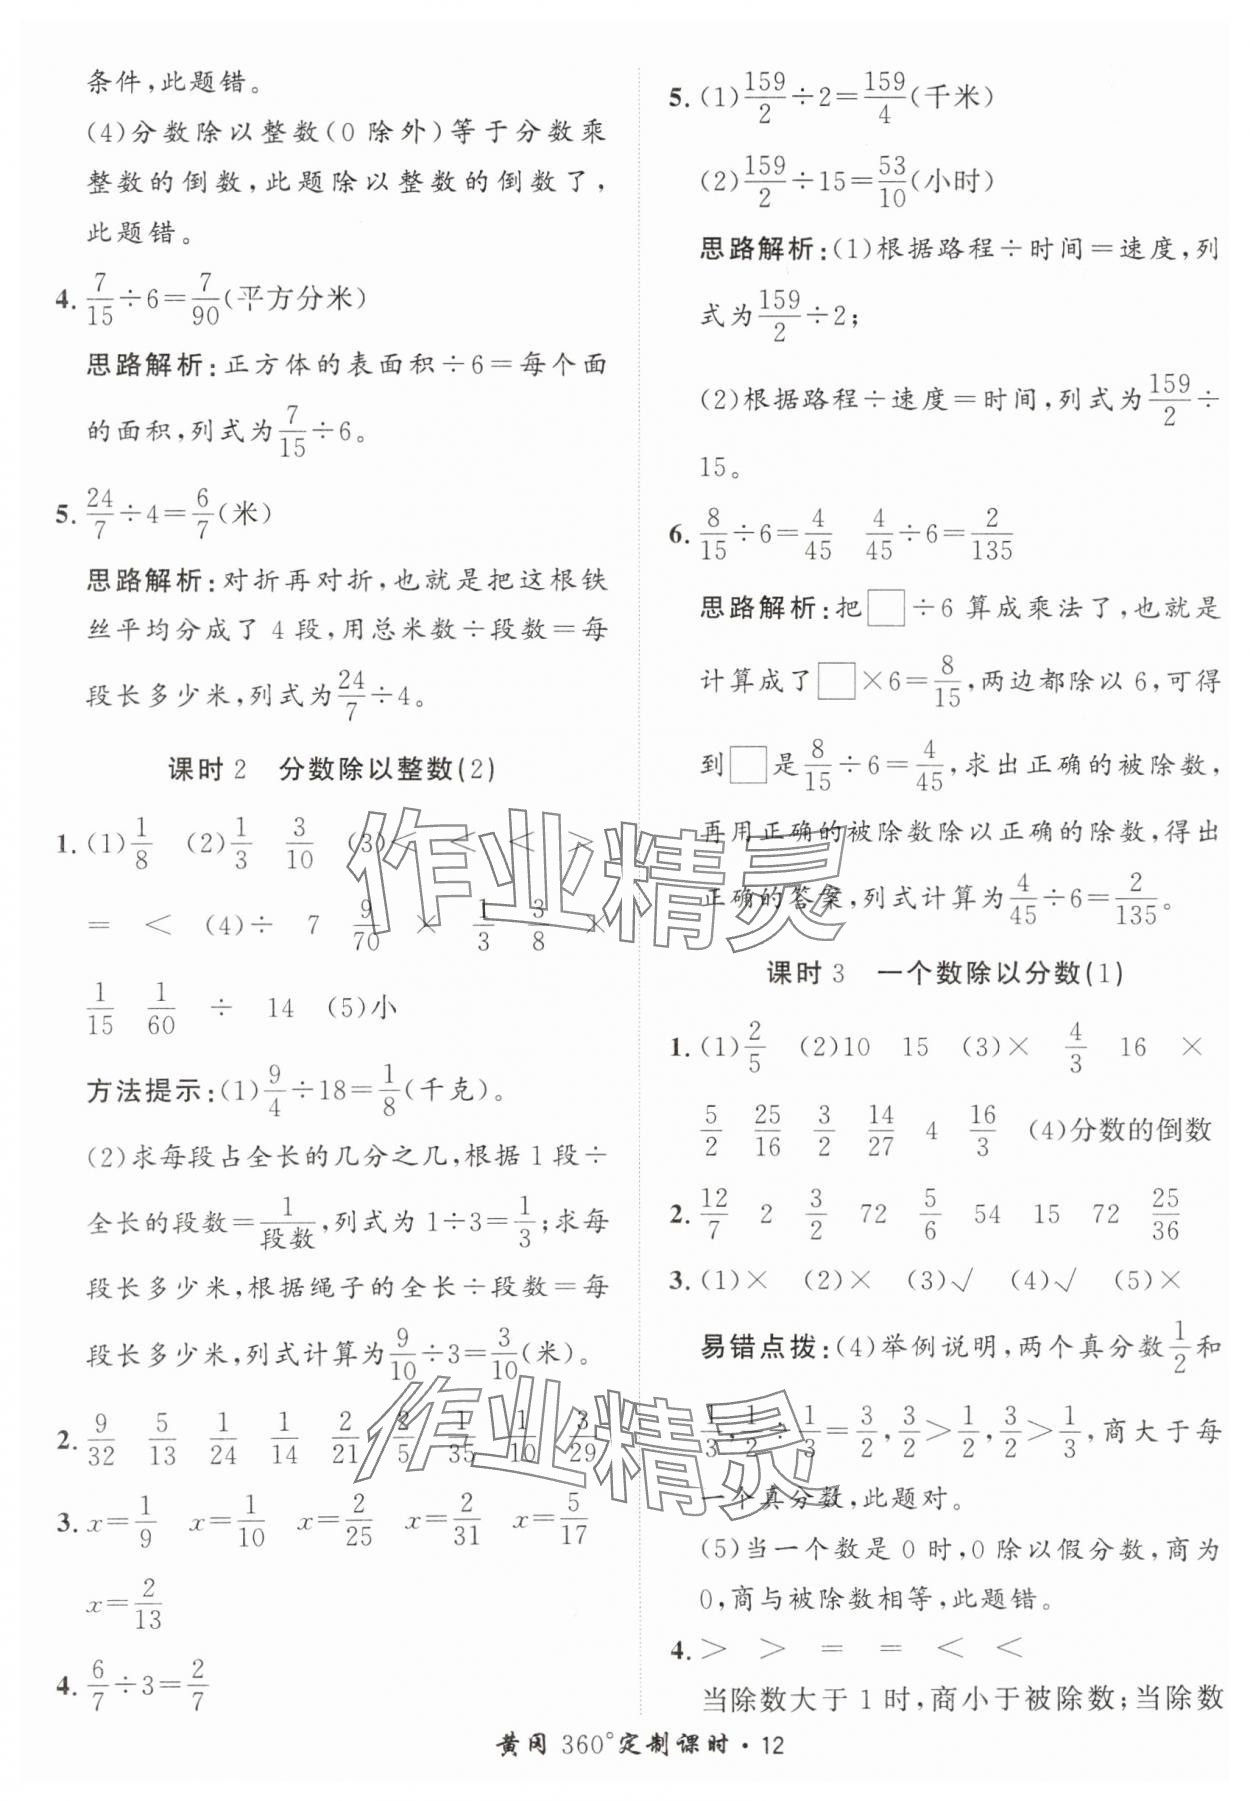 条件,此题错。
(4)分数除以整数(0 除外)等于分数乘
整数的倒数,此题除以整数的倒数了,
此题错。
4. 7/15÷6=7/90(平方分米)
思路解析:正方体的表面积÷6=每个面
的面积,列式为7/15÷6。
5. 24/7÷4=6/7(米)
思路解析:对折再对折,也就是把这根铁
丝平均分成了 4 段,用总米数÷段数=每
段长多少米,列式为24/7÷4。
课时 2 分数除以整数(2)
1. (1)1/8 (2)1/3 3/10 (3)< < < >
= < (4)÷ 7 9/70 × 1/3 3/8 ×
1/15 1/60 ÷ 14 (5)小
方法提示:(1)9/4÷18=1/8(千克)。
(2)求每段占全长的几分之几,根据 1 段÷
全长的段数=1/段数,列式为 1÷3=1/3;求每
段长多少米,根据绳子的全长÷段数=每
段长多少米,列式计算为9/10÷3=3/10(米)。
2. 9/32 5/13 1/24 1/14 2/21 2/5 1/35 1/10 3/29
3. x=1/9 x=1/10 x=2/25 x=2/31 x=5/17
x=2/13
4. 6/7÷3=2/7
5. (1)159/2÷2=159/4(千米)
(2)159/2÷15=53/10(小时)
思路解析:(1)根据路程÷时间=速度,列
式为159/2÷2;
(2)根据路程÷速度=时间,列式为159/2÷
15。
6. 8/15÷6=4/45 4/45÷6=2/135
思路解析:把□÷6 算成乘法了,也就是
计算成了□×6=8/15,两边都除以 6,可得
到□是8/15÷6=4/45,求出正确的被除数,
再用正确的被除数除以正确的除数,得出
正确的答案,列式计算为4/45÷6=2/135。
课时 3 一个数除以分数(1)
1. (1)2/5 (2)10 15 (3)× 4/3 16 ×
5/2 25/16 3/2 14/27 4 16/3 (4)分数的倒数
2. 12/7 2 3/2 72 5/6 54 15 72 25/36
3. (1)× (2)× (3)√ (4)√ (5)×
易错点拨:(4)举例说明,两个真分数1/2和
1/3,1/2÷1/3=3/2,3/2>1/2,3/2>1/3,商大于每
一个真分数,此题对。
(5)当一个数是 0 时,0 除以假分数,商为
0,商与被除数相等,此题错。
4. > > = = < <
当除数大于 1 时,商小于被除数;当除数
黄冈 360°定制课时·12
作业精灵
作业精灵